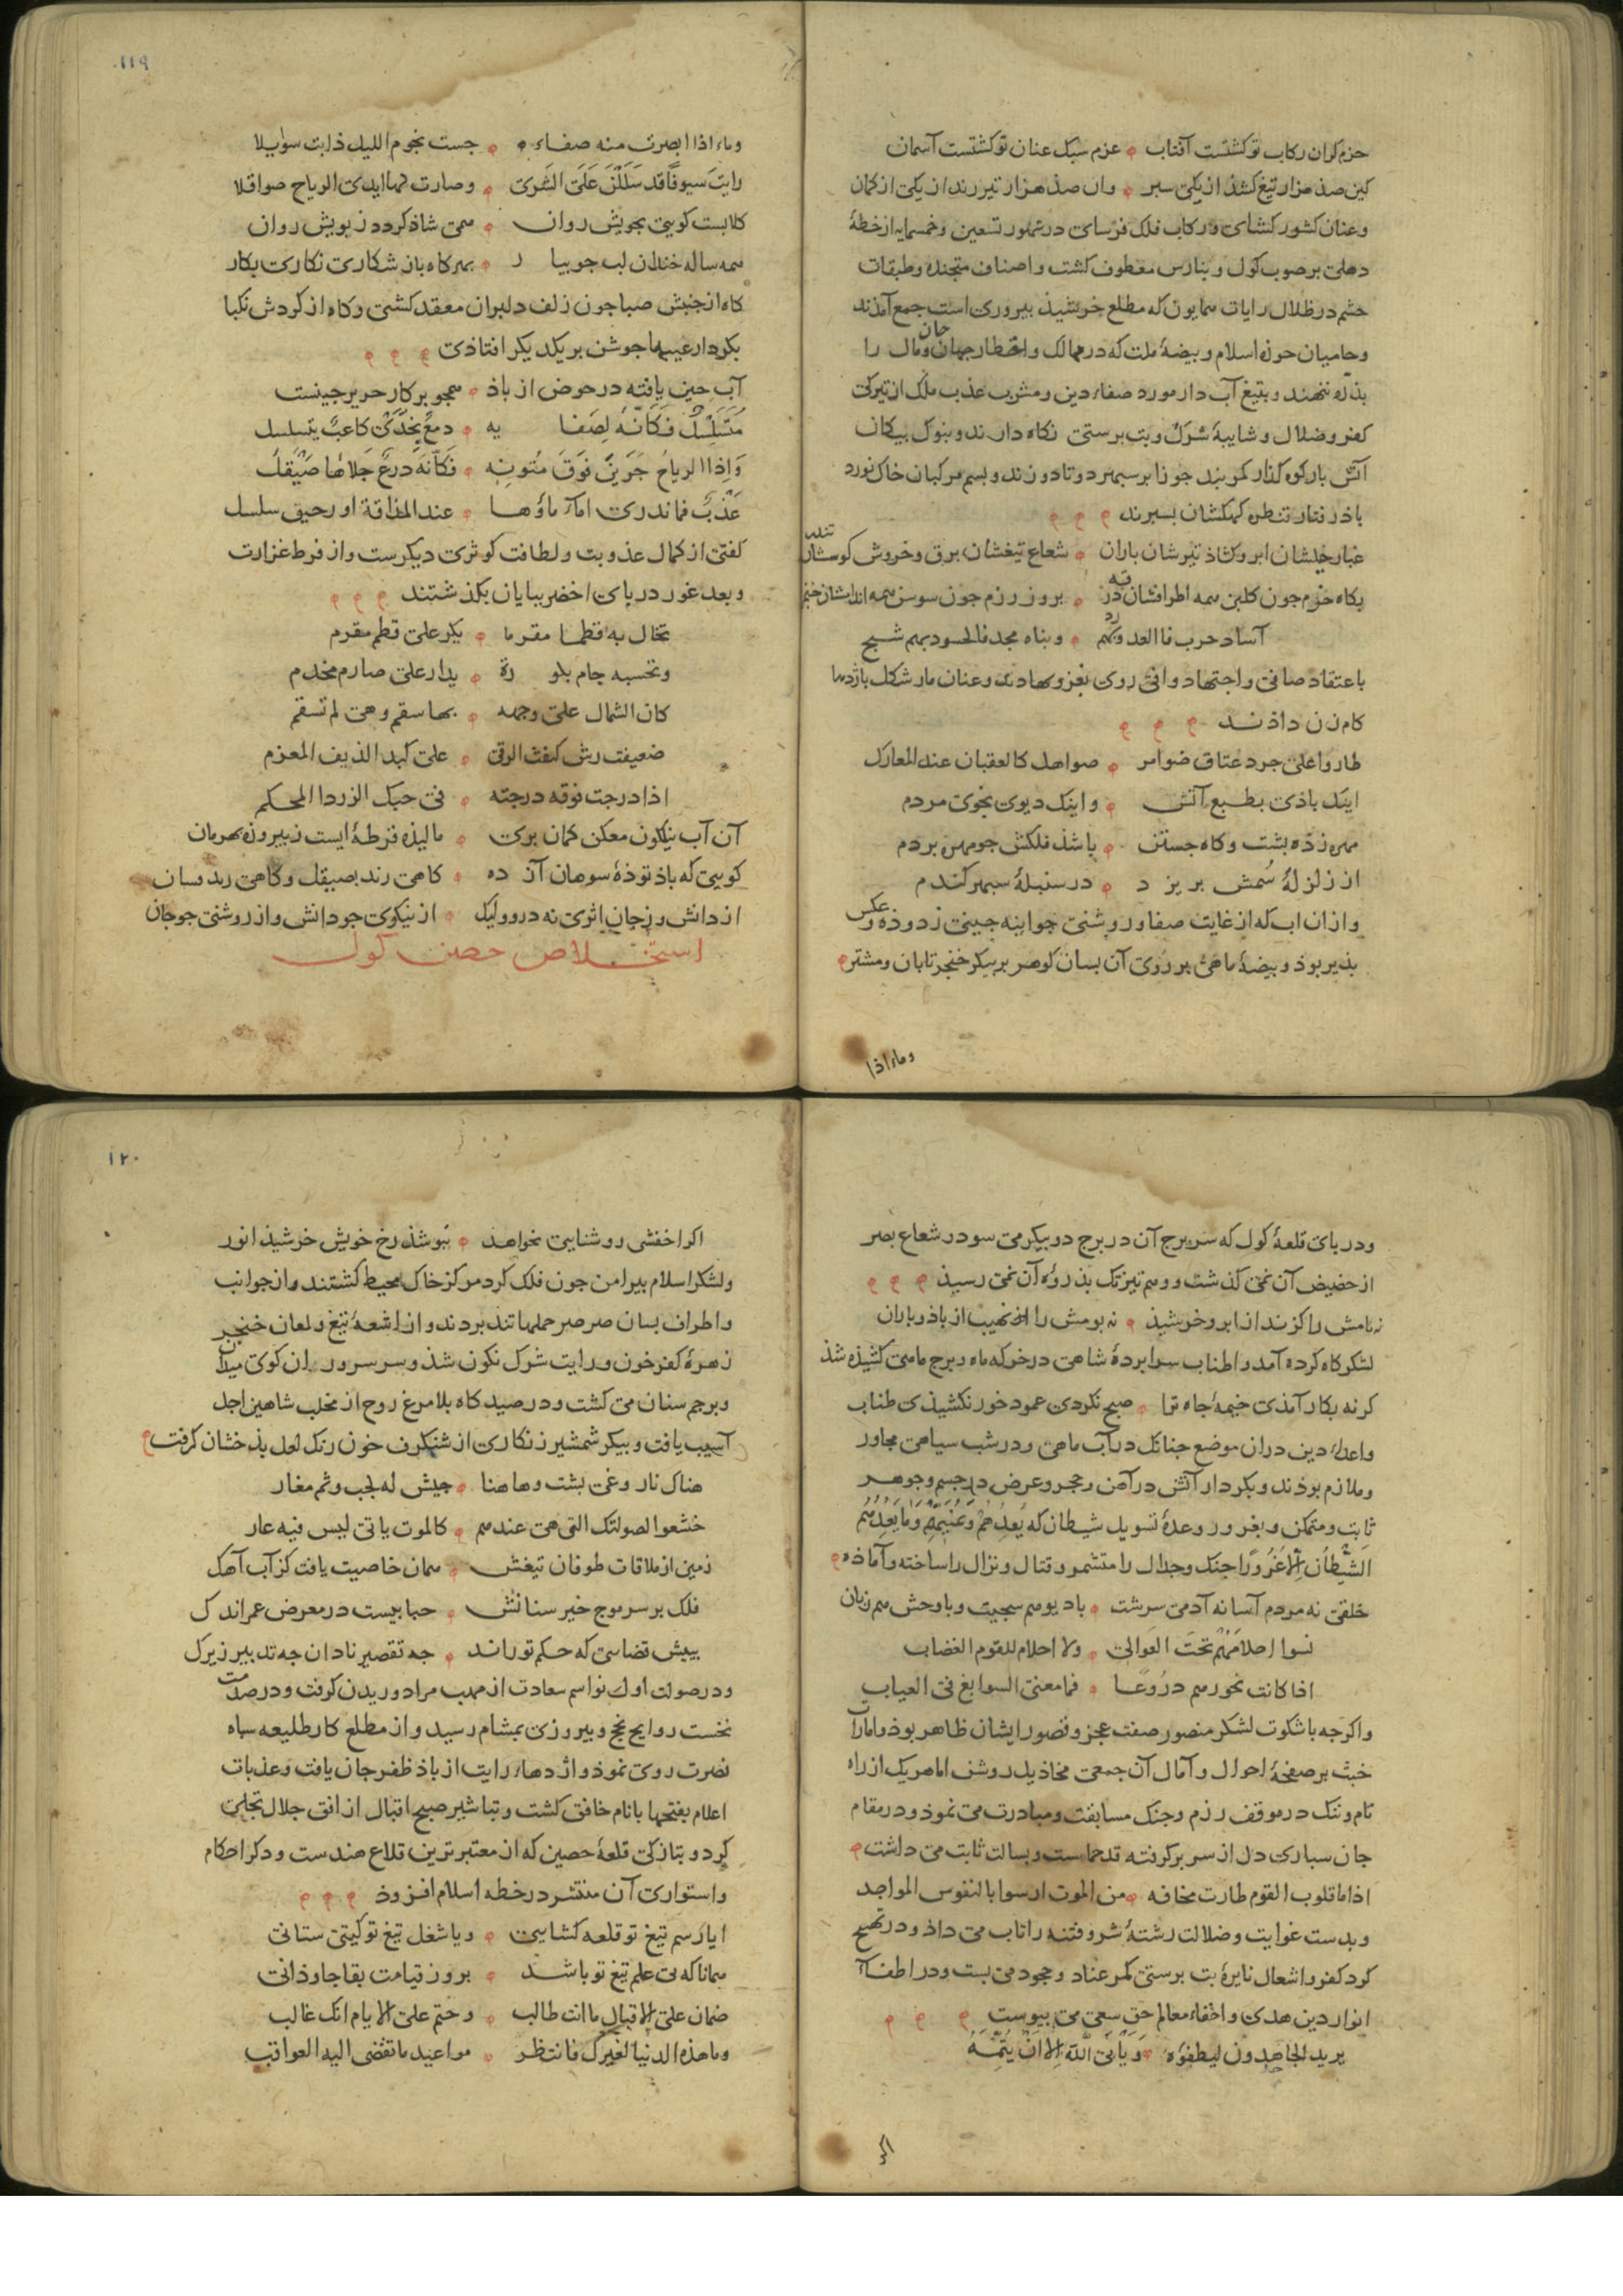 حزم کران رکاب تو کشتست آفتاب عزم سبک عنان تو کشتست آسمان
کین صذ هزار تیغ کشذ از یکی سبر وان صذ هزار تیر زند از یکی کمان
وعنان کشور کشای ورکاب فلک فرسای در شهور تسعین وخمسمایه از خطهٔ
دهلی برصوب کول و بنارس معطوف کشت واصناف متجنده وطبقات
حشم در ظلال رایات همایون که مطلع خرشیذ بیروزی است جمع آمذند
وحامیان حوزه اسلام و بیضهٔ ملت که در ممالک واقطار جهان جان ومال را
بذله ننهند و بتیغ آب دار مورد صفاء دین ومشرب عذب ملک از تیرکی
کفر وضلال وشایبهٔ شرک وبت برستی نکاه دارند و بنوک بیکان
آتش بار کوه کذار کمر بند جوزا بر سبهر دوتا دوزند و بسم مرکبان خاک نورد
باذ رفتار قنطره کهکشان بسبرند
غبار خیلشان ابر وکشاذ تیرشان باران شعاع تیغشان برق وخروش کوسشان تندر
بکاه حزم جون کلبن همه اطرافشان درقه بروز رزم جون سوسن همه اندامشان خنجر
آساد حرب فالعدو بهم رد وبناه مجد فالحسود بهم شبح
باعتقاد صافی واجتهاد وافی روی بغزو وجهاد نهادند وعنان مار شکل بازدها
کام زن داذند
طاروا علی جرد عتاق ضوامر صواهل کالعقبان عند المعارک
اینک باذی بطبع آتش واینک دیوی بخوی مردم
مهره زذه بشت وکاه جستن باشذ فلکش جو مهره بر دم
از زلزلهٔ سمش بریزد در سنبلهٔ سبهر کندم
وازان اب که از غایت صفا وروشنی جو اینه جینی زدوذه وعکس
بذیر بوذ و بیضهٔ ماهی بر روی آن بسان کوهر بر بیکر خنجر تابان ومشتر
وماء اذا
۱۱۹
وماء اذا ابصرت منه صفاءه حست نجوم اللیل ذابت سوایلا
رایت سیوفا قد سللن علی الثری وصارت لها ایدی الریاح صواقلا
کلابست کویی بجویش روان همی شاذ کردد زبویش روان
همه ساله خندان لب جویبار بهر کاه باز شکاری نکاری بکار
کاه از جنبش صبا جون زلف دلبران معقد کشتی وکاه از کردش نکبا
بکردار عیبها جوشن بر یکدیکر افتاذی
آب جین یافته در حوض از باذ همجو برکار حریر جینست
متسلسل فکانه لصفایه دمع بخدی کاعب یتسلسل
واذا الریاح جرین فوق متونه فکانه درع جلاها صیقل
عذب فما ندری اماء ماؤها عند المذاقة او رحیق سلسل
کفتی از کمال عذوبت ولطافت کوثری دیکرست واز فرط غزارت
وبعد غور دریای اخضر ببایان بکذشتند
تخال به قطما مقرما یکر علی قطم مقرم
وتحسبه جام بلورة یدار علی صارم مخذم
کان الشمال علی وجهه بها سقم وهی لم تسقم
ضعیف رش کنفث الرقی علی کبد الدنف المغرم
اذا درجت فوقه درجته فی حبک الزرد المحکم
آن آب نیلکون معکن کمان بری مالیذه قرطهٔ ایست زبیروزه بهرمان
کویی که باذ توذهٔ سوهان آز ده کاهی زند بصیقل وکاهی زند وسان
از دانش وزجان اثری نه درو ولیک از نیکوی جو دانش واز روشنی جو جان
استخلاص حصن کول
ودر بای قلعهٔ کول که سر برج آن در برج دو بیکر می سود وشعاع بصر
از حضیض آن نمی کذشت ووهم تیز تک بذروهٔ آن نمی رسیذ
نه بامش را کزند از ابر وخرشیذ نه بومش را نهیب از باذ وباران
لشکرکاه کرده آمد واطناب سرابردهٔ شاهی در خرکه ماه وبرج ماهی کشیذه شذ
کرنه بکار آمذی خیمهٔ جاه ترا صبح نکردی عمود خور نکشیذی طناب
واعداء دین دران موضع جنانک در آب ماهی ودر شب سیاهی مجاور
وملازم بوذند وبکردار آتش در آهن وحجر وعرض در جسم وجوهر
ثابت ومتمکن وبغرور وعدهٔ تسویل شیطان که یعدهم ویمنیهم وما یعدهم
الشیطان الا غرورا جنک وجدال را متشمر وقتال ونزال را ساخته وآماذه
خلقی نه مردم آسا نه آدمی سرشت با دیو هم سجیت وبا وحش هم زبان
نسوا احلامهم تحت العوالی ولا احلام للقوم الغضاب
اذا کانت نحورهم دروعا فما معنی السوابغ فی العیاب
واکرجه باشکوت لشکر منصور صفت عجز وقصور ایشان ظاهر بوذ وامارات
خبث بر صفحهٔ احوال وآمال آن جمعی مخاذیل روشن اما هر یک از راه
نام وننک در موقف رزم وجنک مسابقت ومبادرت می نموذ ودر مقام
جان سباری دل از سر برکرفته قدم حماست وبسالت ثابت می داشت
اذا ما قلوب القوم طارت مخافه من الموت ارسوا بالنفوس المواجد
وبدست غوایت وضلالت رشتهٔ شر وفتنه را تاب می داذ ودر تهییج
کرد کفر واشعال نایرهٔ بت برستی کمر عناد وجحود می بست ودر اطفاء
انوار دین هدی واخفاء معالم حق سعی می بیوست
یرید الجاهدون لیطفؤه ویأبی الله الا ان یتمه
اکر
۱۲۰
اکر اخفشی روشنایی نخواهد نبوشذ رخ خویش خرشیذ انور
ولشکر اسلام بیرامن جون فلک کرد مرکز خاک محیط کشتند واز جوانب
واطراف بسان صرصر حملها تند بردند واز اشعهٔ تیغ ولمعان خنجر
زهرهٔ کفر خون ورایت شرک نکون شذ وسر سروران کوی میدان
وبرجم سنان می کشت ودر صیدکاه بلا مرغ روح از مخلب شاهین اجل
آسیب یافت وبیکر شمشیر زنکاری از شنکرف خون رنک لعل بذخشان کرفت
هناک نار وغی بشت وهاهنا جیش له لجب وثم مغار
خشعوا لصولتک التی هی عندهم کالموت یاتی لیس فیه عار
زمین از ملاقات طوفان تیغش همان خاصیت یافت کز آب آهک
فلک بر سر موج خیز سنانش حبابیست در معرض عمر اندک
ببیش قضایی که حکم تو راند جه تقصیر نادان جه تدبیر زیرک
ودر صولت اول نواسم سعادت از مهب مراد وزیدن کرفت ودر صدمت
نخست روایح نجح وبیروزی بمشام رسید واز مطلع کار طلیعه سباه
نصرت روی نموذ واژدهاء رایت از باذ ظفر جان یافت وعذبات
اعلام بفتحها بانام خافق کشت وتباشیر صبح اقبال از افق جلال تجلی
کرد وبتازکی قلعهٔ حصین که از معتبر ترین قلاع هندست وذکر احکام
واستواری آن منتشر در خطه اسلام افزوذ
ایا رسم تیغ تو قلعه کشایی ویا شغل تیغ تو کیتی ستانی
همانا که بی علم تیغ تو باشد بروز قیامت بقا جاوذانی
ضمان علی الاقبال ما انت طالب وحتم علی الایام انک غالب
وما هذه الدنیا لغیرک فانتظر مواعید ما تفضی الیه العواقب